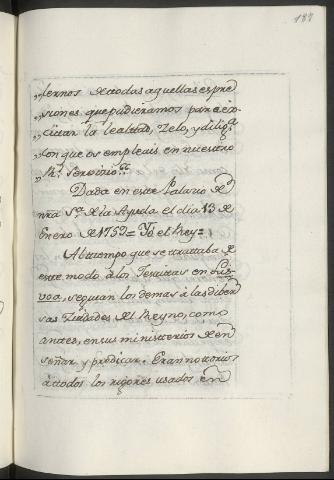 187
„lernos de todas aquellas espre
„siones que pudieramos para ex-
„citar la lealtad, zelo, y dilig.ª
„con que os empleais en nuestro
„R.l servicio."
Dada en este Palacio de
nra S.ra de la Ayuda el dia 13 de
Enero de 1759 = Yo el Rey =
Al tiempo que se trattaba de
este modo á los Jesuitas en Lis-
voa, seguian los demas á las diber
sas Ziudades del Reyno, como
antes, en sus ministerios de en
señar y predicar. Eran nottorios
á todos los rigores usados en